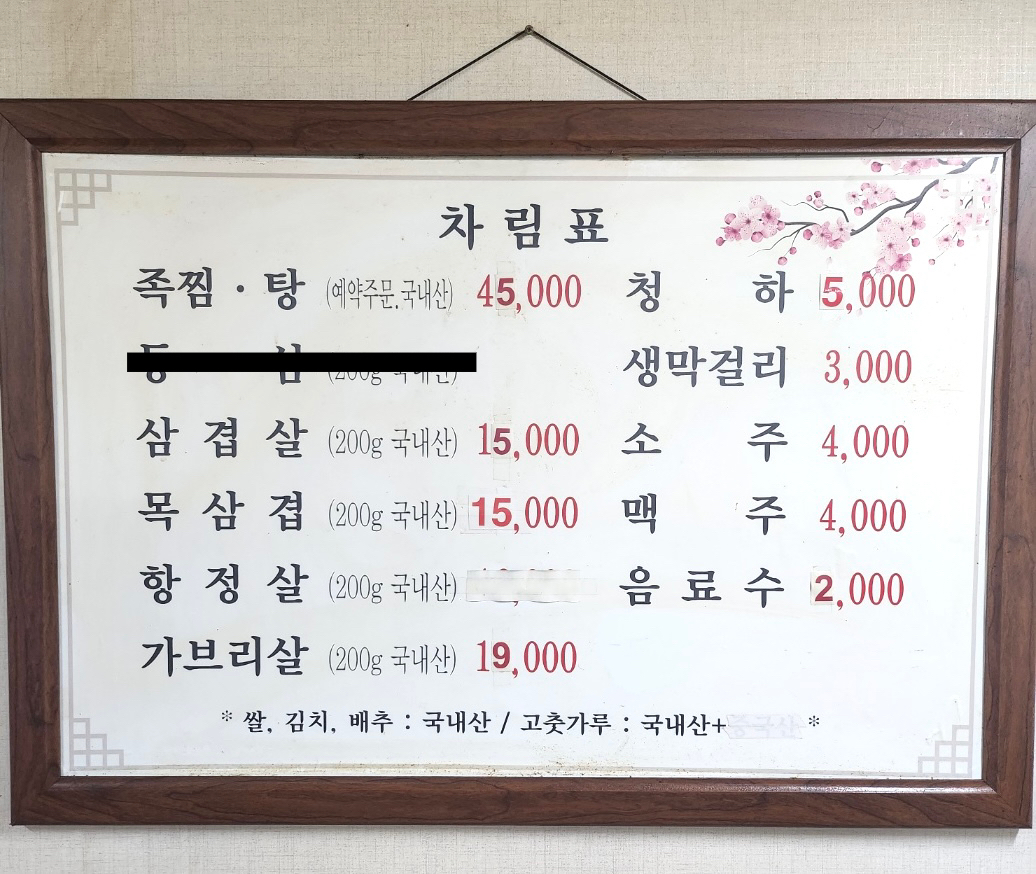 차림표
족찜·탕 (예약주문.국내산) 45,000 청하 5,000
생막걸리 3,000
삼겹살 (200g 국내산) 15,000 소주 4,000
목삼겹 (200g 국내산) 15,000 맥주 4,000
항정살 (200g 국내산) 음료수 2,000
가브리살 (200g 국내산) 19,000
* 쌀, 김치, 배추 : 국내산 / 고춧가루 : 국내산+ *